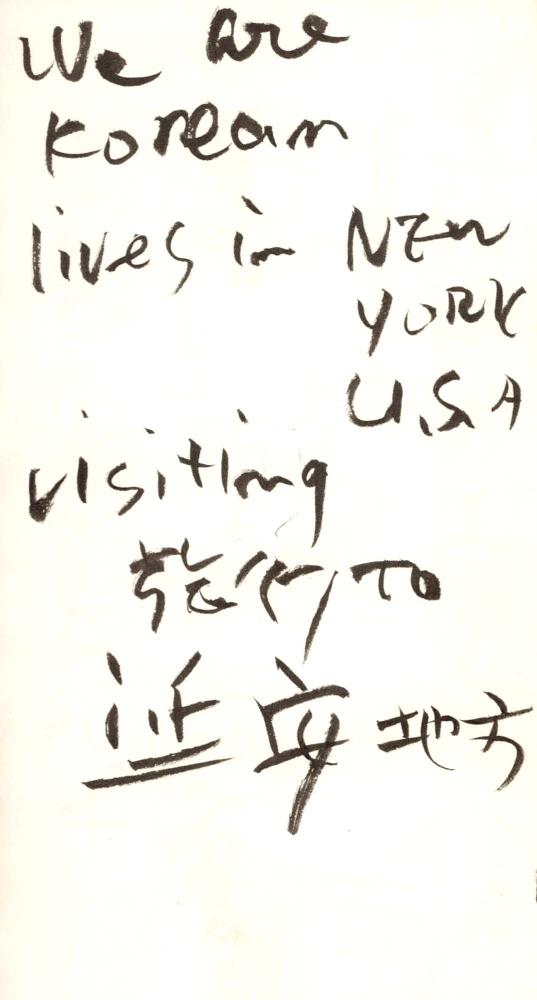 We are
Korean
lives in NEW
YORK
U.S.A
visiting
旅行 TO
延安 地方